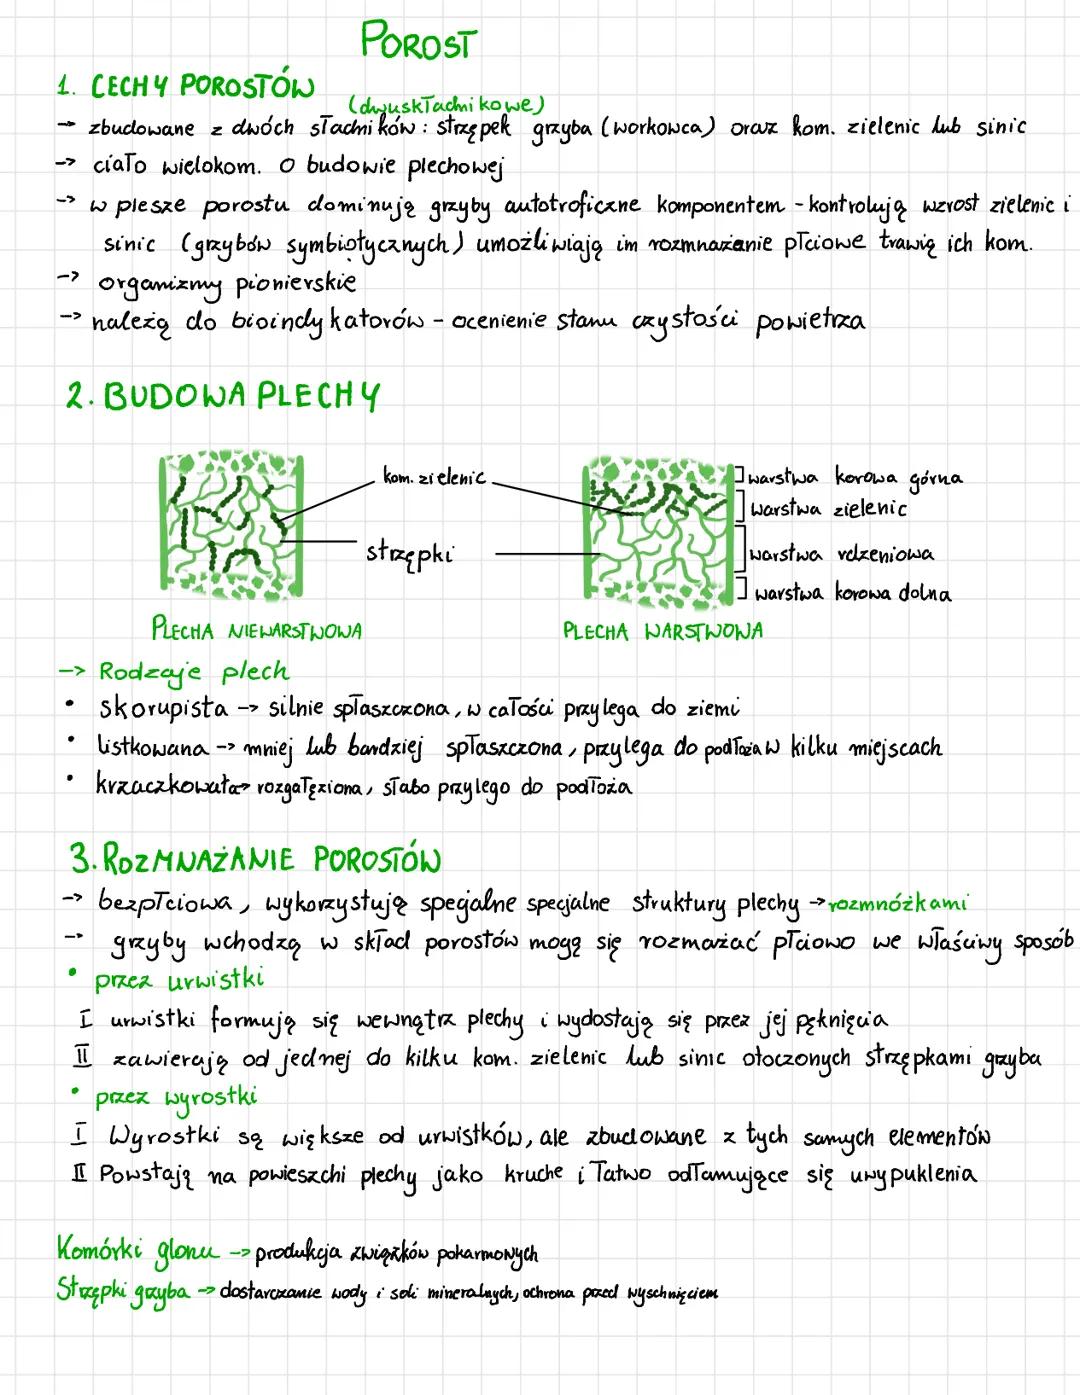 POROST
1. CECHY POROSTÓW
(dwuskładnikowe)
→ zbudowane z dwóch składników : strzępek grzyba (workowca) oraz kom. zielenic lub sinic
→ ciało wielokom. o budowie plechowej
→ w plesze porostu dominują grzyby autotroficzne komponentem - kontrolują wzrost zielenic i
sinic (grzybów symbiotycznych) umożliwiają im rozmnażanie płciowe trawią ich kom.
→ organizmy pionierskie
→ należą do bioindykatorów - ocenienie stanu czystości powietrza
2. BUDOWA PLECHY
kom. zielenic
strzępki
warstwa korowa górna
warstwa zielenic
warstwa rdzeniowa
warstwa korowa dolna
PLECHA NIEWARSTWOWA
PLECHA WARSTWOWA
→ Rodzaje plech
• skorupista → silnie spłaszczona, w całości przylega do ziemi
• listkowana → mniej lub bardziej spłaszczona, przylega do podłoża w kilku miejscach
• krzaczkowata→ rozgałęziona, słabo przylego do podłoża
3. ROZMNAŻANIE POROSTÓW
→ bezpłciowa, wykorzystują specjalne specjalne struktury plechy → rozmnóżkami
→ grzyby wchodzą w skład porostów mogą się rozmażać płciowo we właściwy sposób
• przez urwistki
I urwistki formują się wewnątrz plechy i wydostają się przez jej pęknięcia
II zawierają od jednej do kilku kom. zielenic lub sinic otoczonych strzępkami grzyba
• przez wyrostki
I Wyrostki są większe od urwistków, ale zbudowane z tych samych elementów
II Powstają na powieszchi plechy jako kruche i łatwo odłamujące się uwypuklenia
Komórki glonu → produkcja związków pokarmowych
Strzępki grzyba → dostarczanie wody i soli mineralnych, ochrona przed wyschnięciem